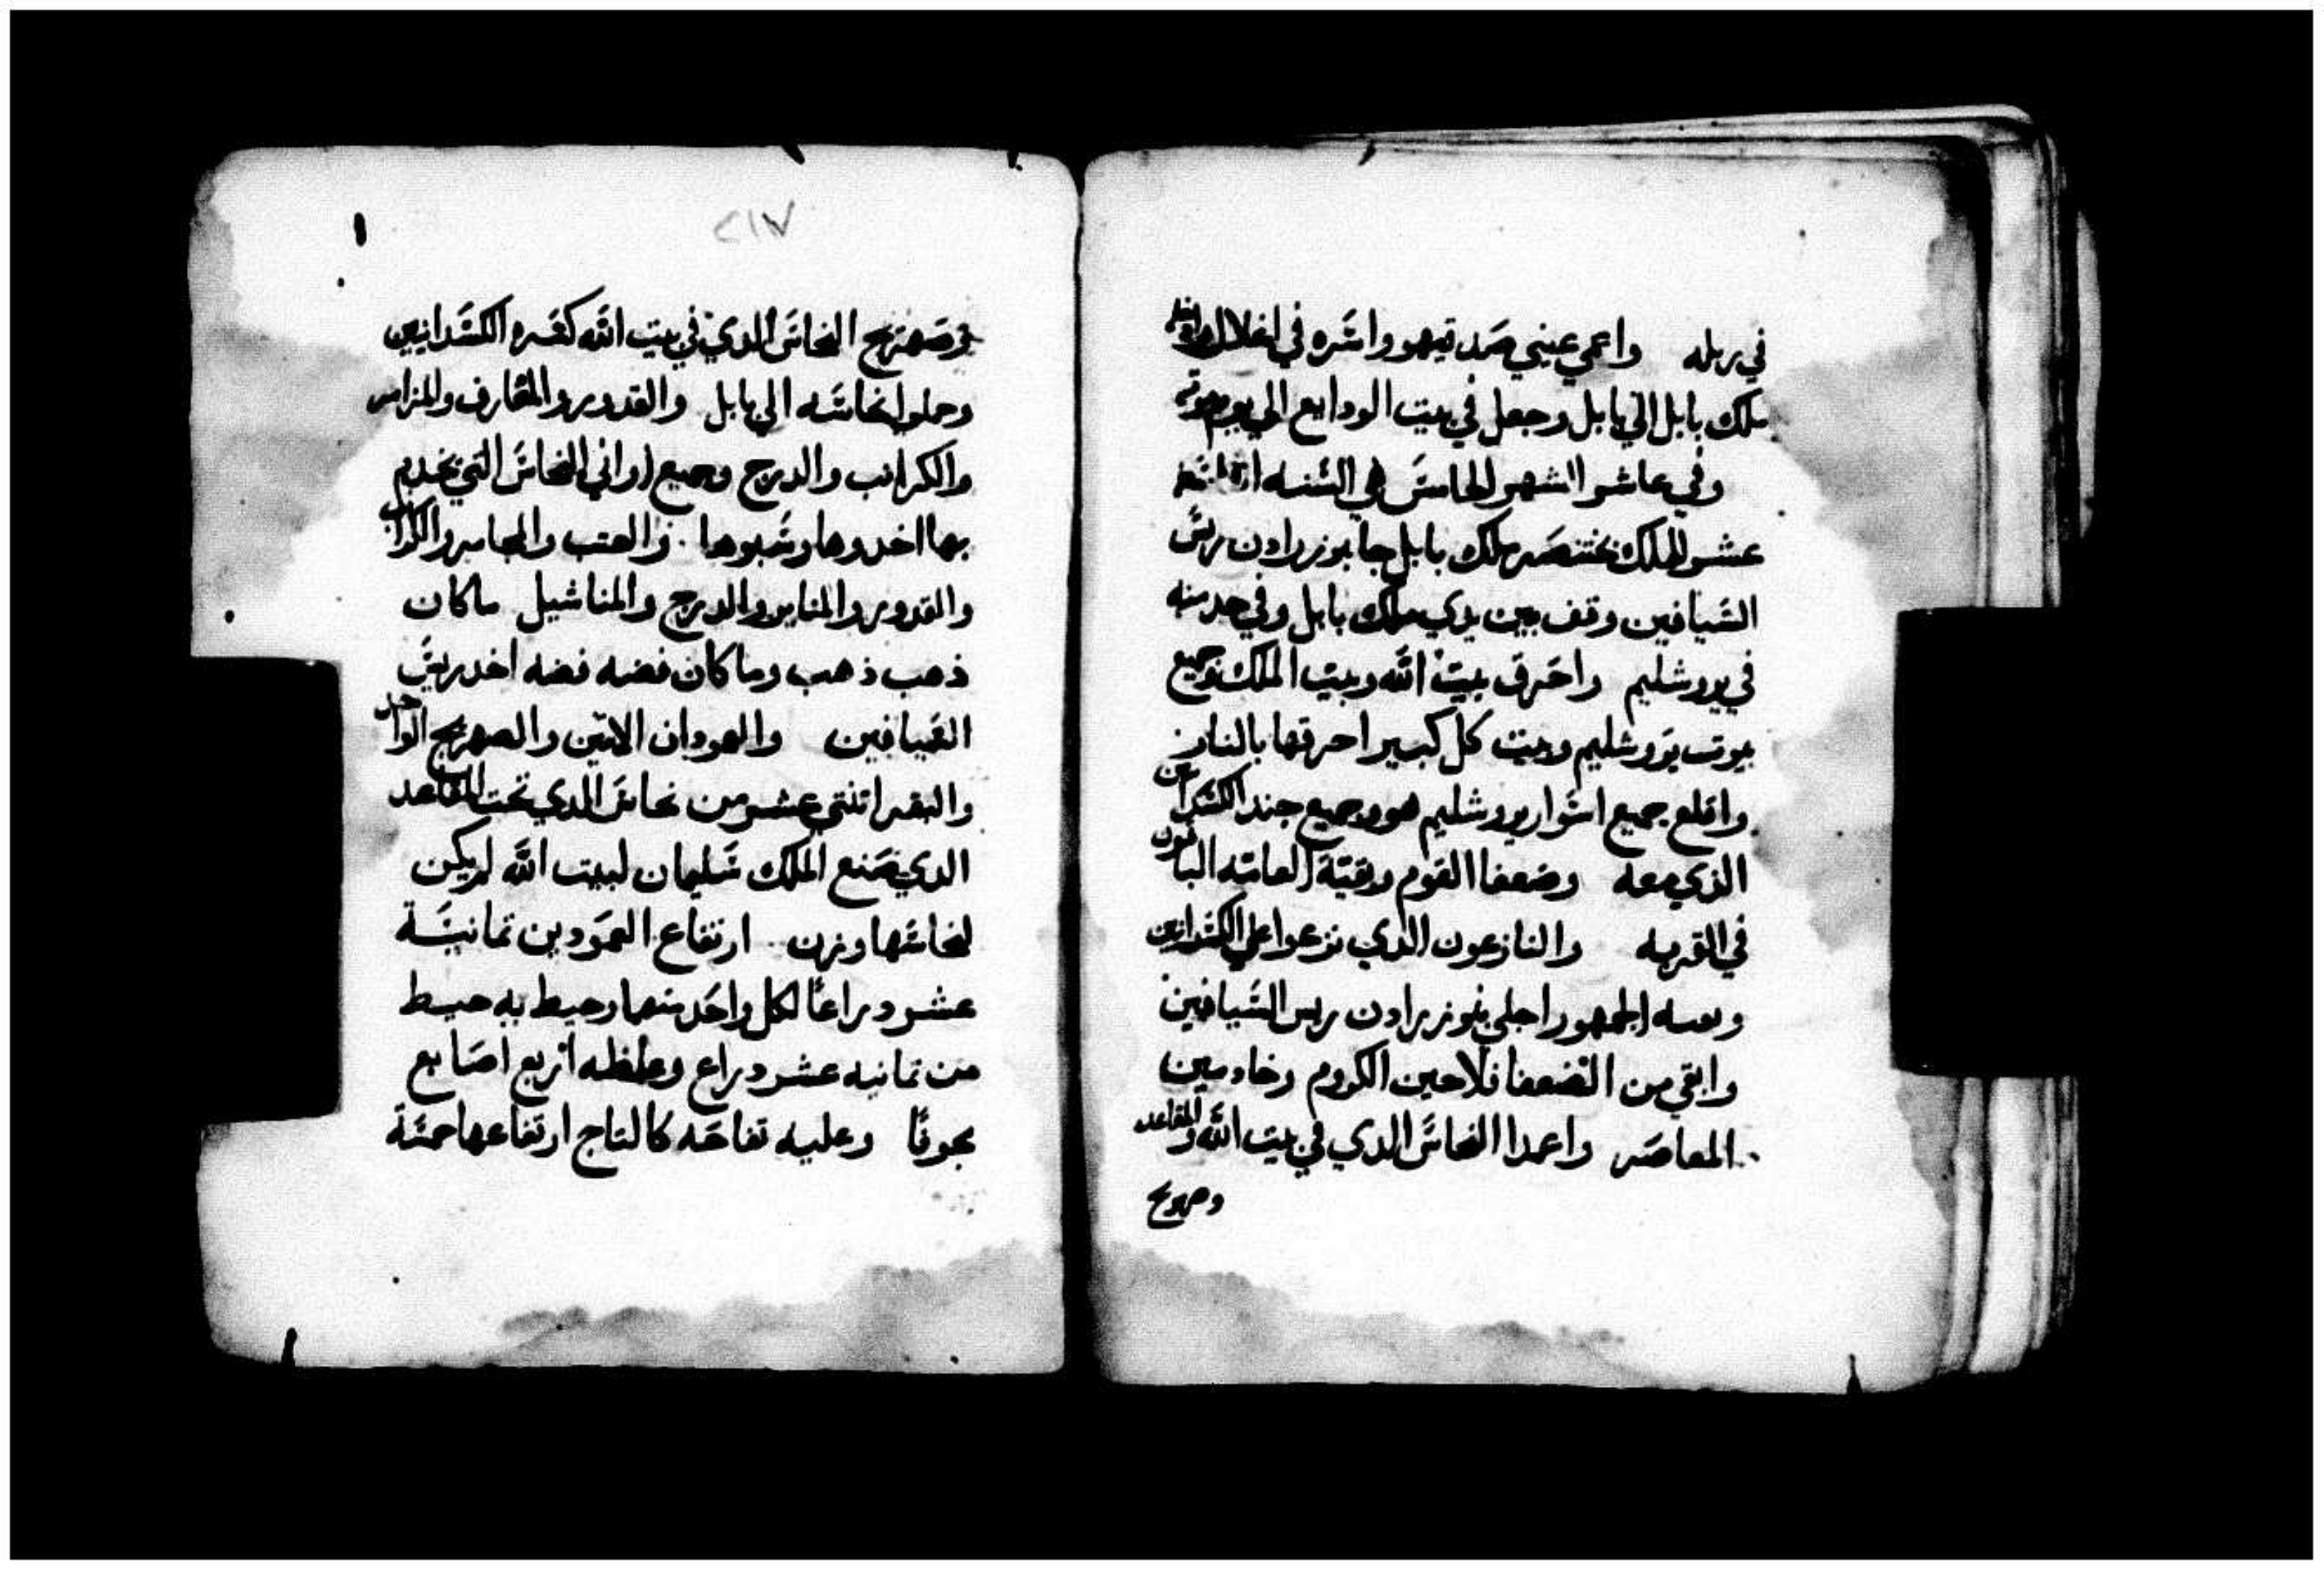 في ربله واعمي عيني صدقيهو واشره في اغلال
ملك بابل الي بابل وجعل في بيت الودايع الي يوم موته
وفي عاشر الشهر الخامس هي السنه
عشر للملك بختنصر ملك بابل جا بنوزرادن ريس
السيافين وقف بين يدي ملك بابل وفي خدمته
في يوروشليم واحرق بيت الله وبيت الملك وجميع
بيوت يوروشليم وبيت كل كبير احرقها بالنار
واقلع جميع اسوار يوروشليم هو وجميع جند الكسدانين
الذي معه وضعفا القوم وبقية العامه الباقون
في القريه والنازعون الدي نزعوا علي الكسدانين
وبقيه الجمهور اجلي بنوزرادن ريس السيافين
وابقي من الضعفا فلاحين الكروم وخادمين
المعاصر واعمدا النحاس الدي في بيت الله والمقاعد
وصهريج
٢١٧
وصهريج النحاس الدي في بيت الله كسره الكسدانين
وحملوا نحاسه الي بابل والقدور والمغارف والمزامر
والكرانب والدرج وجميع اواني النحاس التي يخدم
بها اخدوها وسبوها والعتب والمجامر والكرانب
والقدور والمناير والدرج والمناشيل ماكان
ذهب ذهب وما كان فضه فضه اخد ريس
السيافين والعمودان الاتنين والصهريج الواحد
والبقر اتنتي عشر من نحاس الدي تحت المقاعد
الدي صنع الملك سليمان لبيت الله لم يكن
لنحاسها وزن ارتفاع العمودين تمانية
عشر دراعًا لكل واحد منهما وحيط به حيط
من تمانيه عشر دراع وغلظه اربع اصابع
مجوفًا وعليه تفاحه كالتاج ارتفاعها خمسة